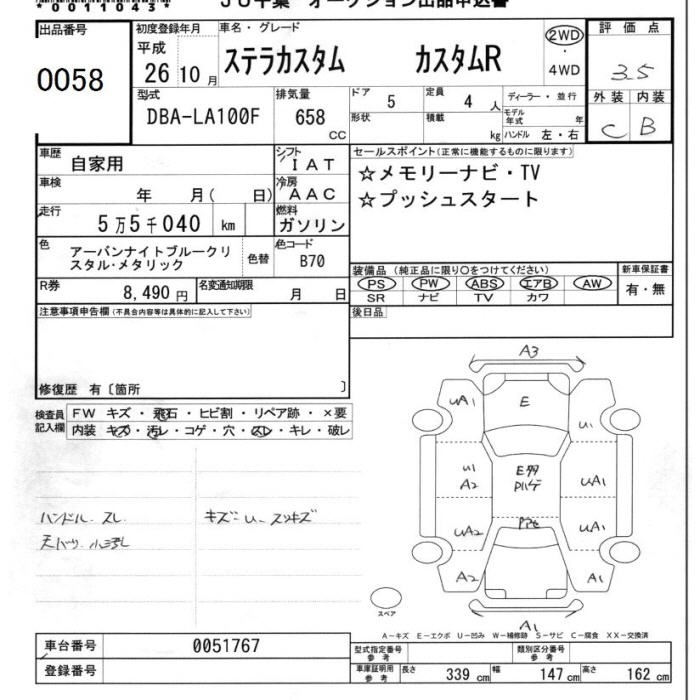 *0011043*
JU千葉 オークション出品申込書
出品番号
0058
初度登録年月
平成
26 10 月
車名・グレード
ステラカスタム カスタムR
2WD
・
4WD
評価点
3.5
外装 内装
C B
型式
DBA-LA100F
排気量
658
CC
ドア 5
定員 4 人
形状
積載 kg
ディーラー・並行
モデル年式 年
ハンドル 左・右
車歴 自家用
シフト IAT
車検 年 月( 日)
冷房 AAC
走行 5万5千040 km
燃料 ガソリン
色
アーバンナイトブルークリ
スタル・メタリック
色替
色コード
B70
R券 8,490 円
名変通知期限 月 日
セールスポイント(正常に機能するものに限ります)
☆メモリーナビ・TV
☆プッシュスタート
装備品 (純正品に限り○をつけてください)
PS PW ABS エアB AW
SR ナビ TV カワ
新車保証書
有・無
後日品
注意事項申告欄(不具合内容等は具体的に記入して下さい)
修復歴 有〔箇所 〕
検査員
記入欄
FW キズ・飛石・ヒビ割・リペア跡・×要
内装 キズ・汚レ・コゲ・穴・スレ・キレ・破レ
ハンドル スレ
キズ=U スリキズ
A3
UA1
E
U1
U1
A2
UA1
UA2
UA1
A2
A1
A1
スペア
A-キズ E-エクボ U-凹み W-補修跡 S-サビ C-腐食 XX-交換済
車台番号 0051767
登録番号
型式指定番号
参考
類別区分番号
参考
車庫証明用
参考
長さ 339 cm 幅 147 cm 高さ 162 cm